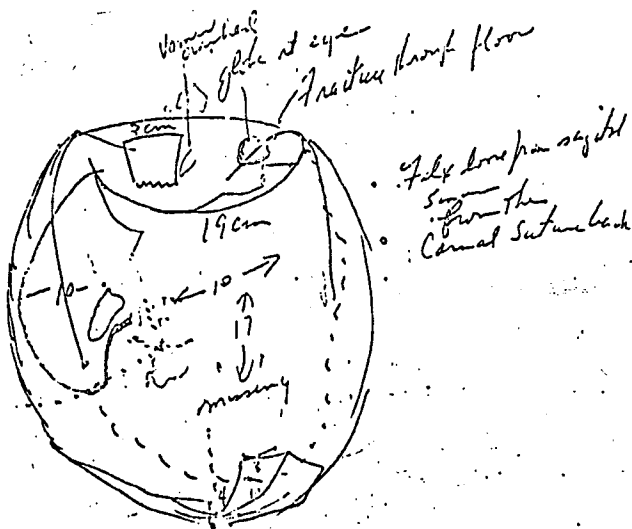 Vomer
globe rt eye
Fracture through floor
3cm
Falx loose from sagittal
sinus
from the
Coronal suture back
19cm
10
10
17
missing